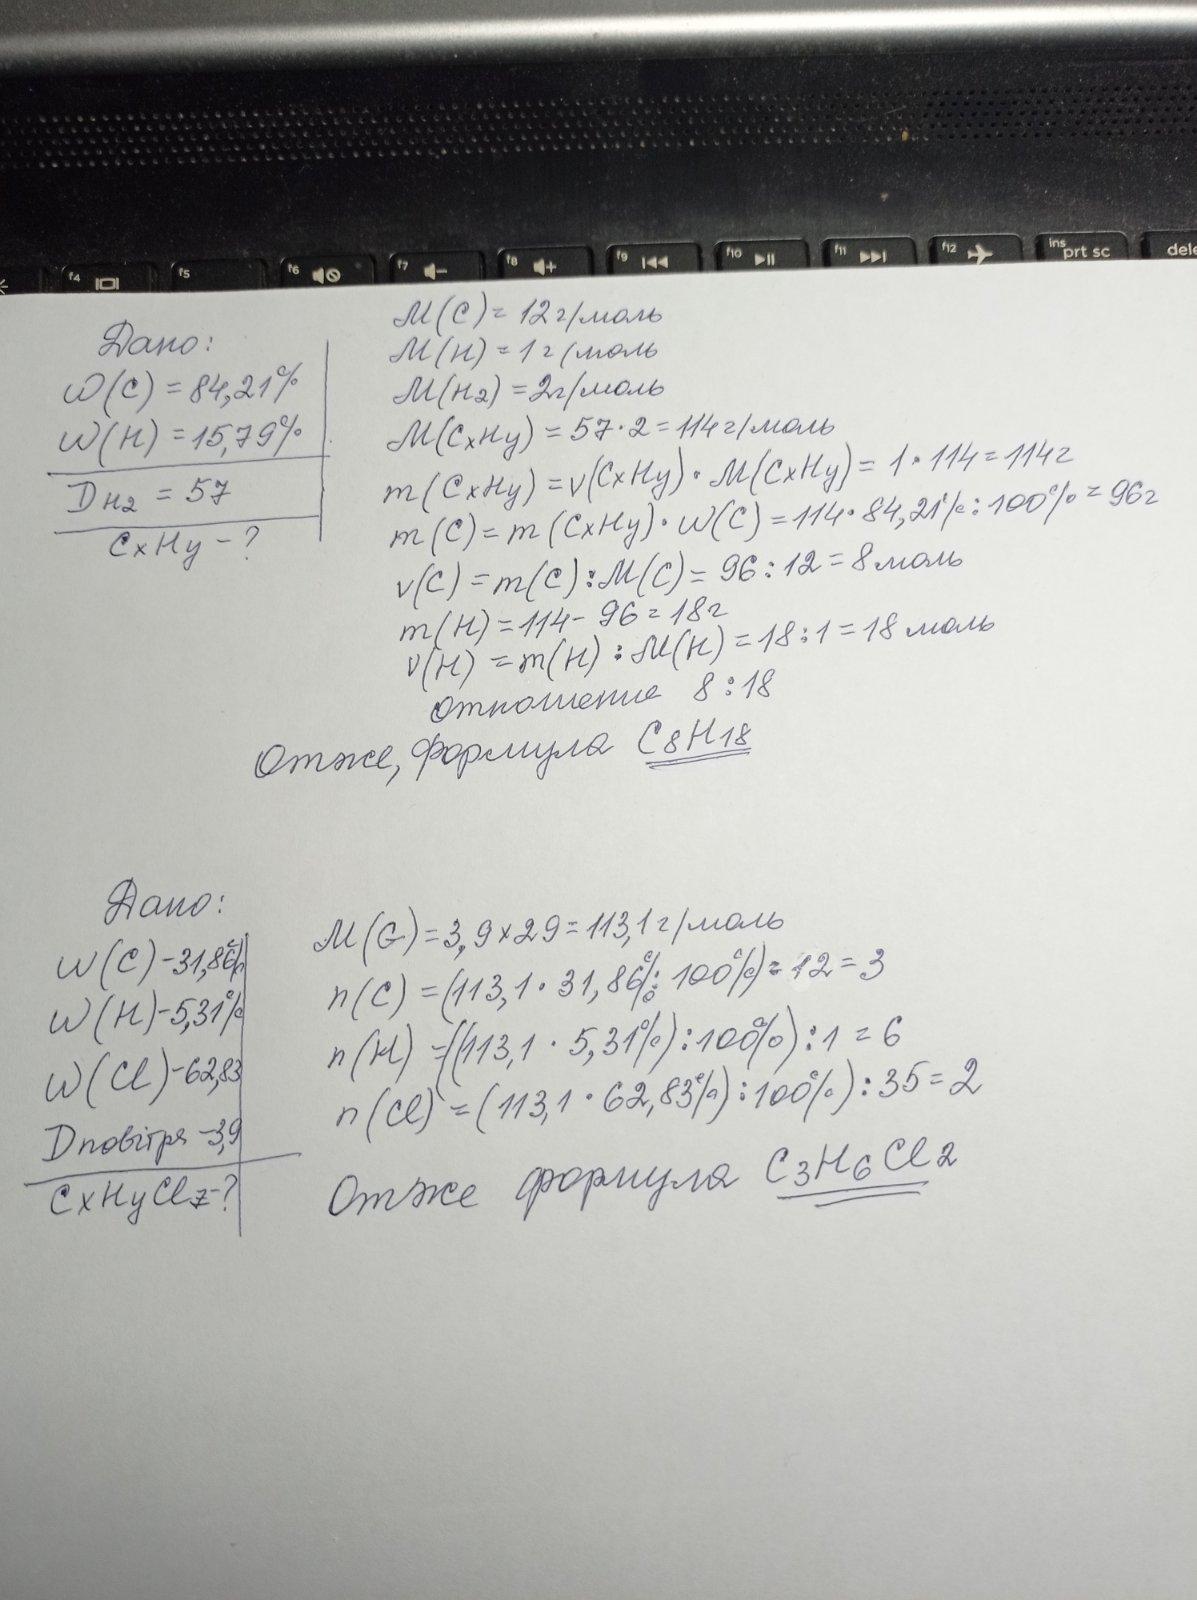 f4 f5 f6 f7 f8 f9 f10 f11 f12 ins prt sc dele
Дано:
W(C) = 84,21%
W(H) = 15,79%
DH2 = 57
CxHy - ?
M(C) = 12 г/моль
M(H) = 1 г/моль
M(H2) = 2г/моль
M(CxHy) = 57 · 2 = 114 г/моль
m(CxHy) = ν(CxHy) · M(CxHy) = 1 · 114 = 114г
m(C) = m(CxHy) · W(C) = 114 · 84,21% : 100% = 96г
ν(C) = m(C) : M(C) = 96 : 12 = 8 моль
m(H) = 114 - 96 = 18г
ν(H) = m(H) : M(H) = 18 : 1 = 18 моль
отношение 8 : 18
Отже, формула C8H18
Дано:
W(C) - 31,86%
W(H) - 5,31%
W(Cl) - 62,83
Dповітря - 3,9
CxHyClz - ?
M(G) = 3,9 x 29 = 113,1 г/моль
n(C) = (113,1 · 31,86% : 100%) : 12 = 3
n(H) = ((113,1 · 5,31%) : 100%) : 1 = 6
n(Cl) = (113,1 · 62,83%) : 100%) : 35 = 2
Отже формула C3H6Cl2